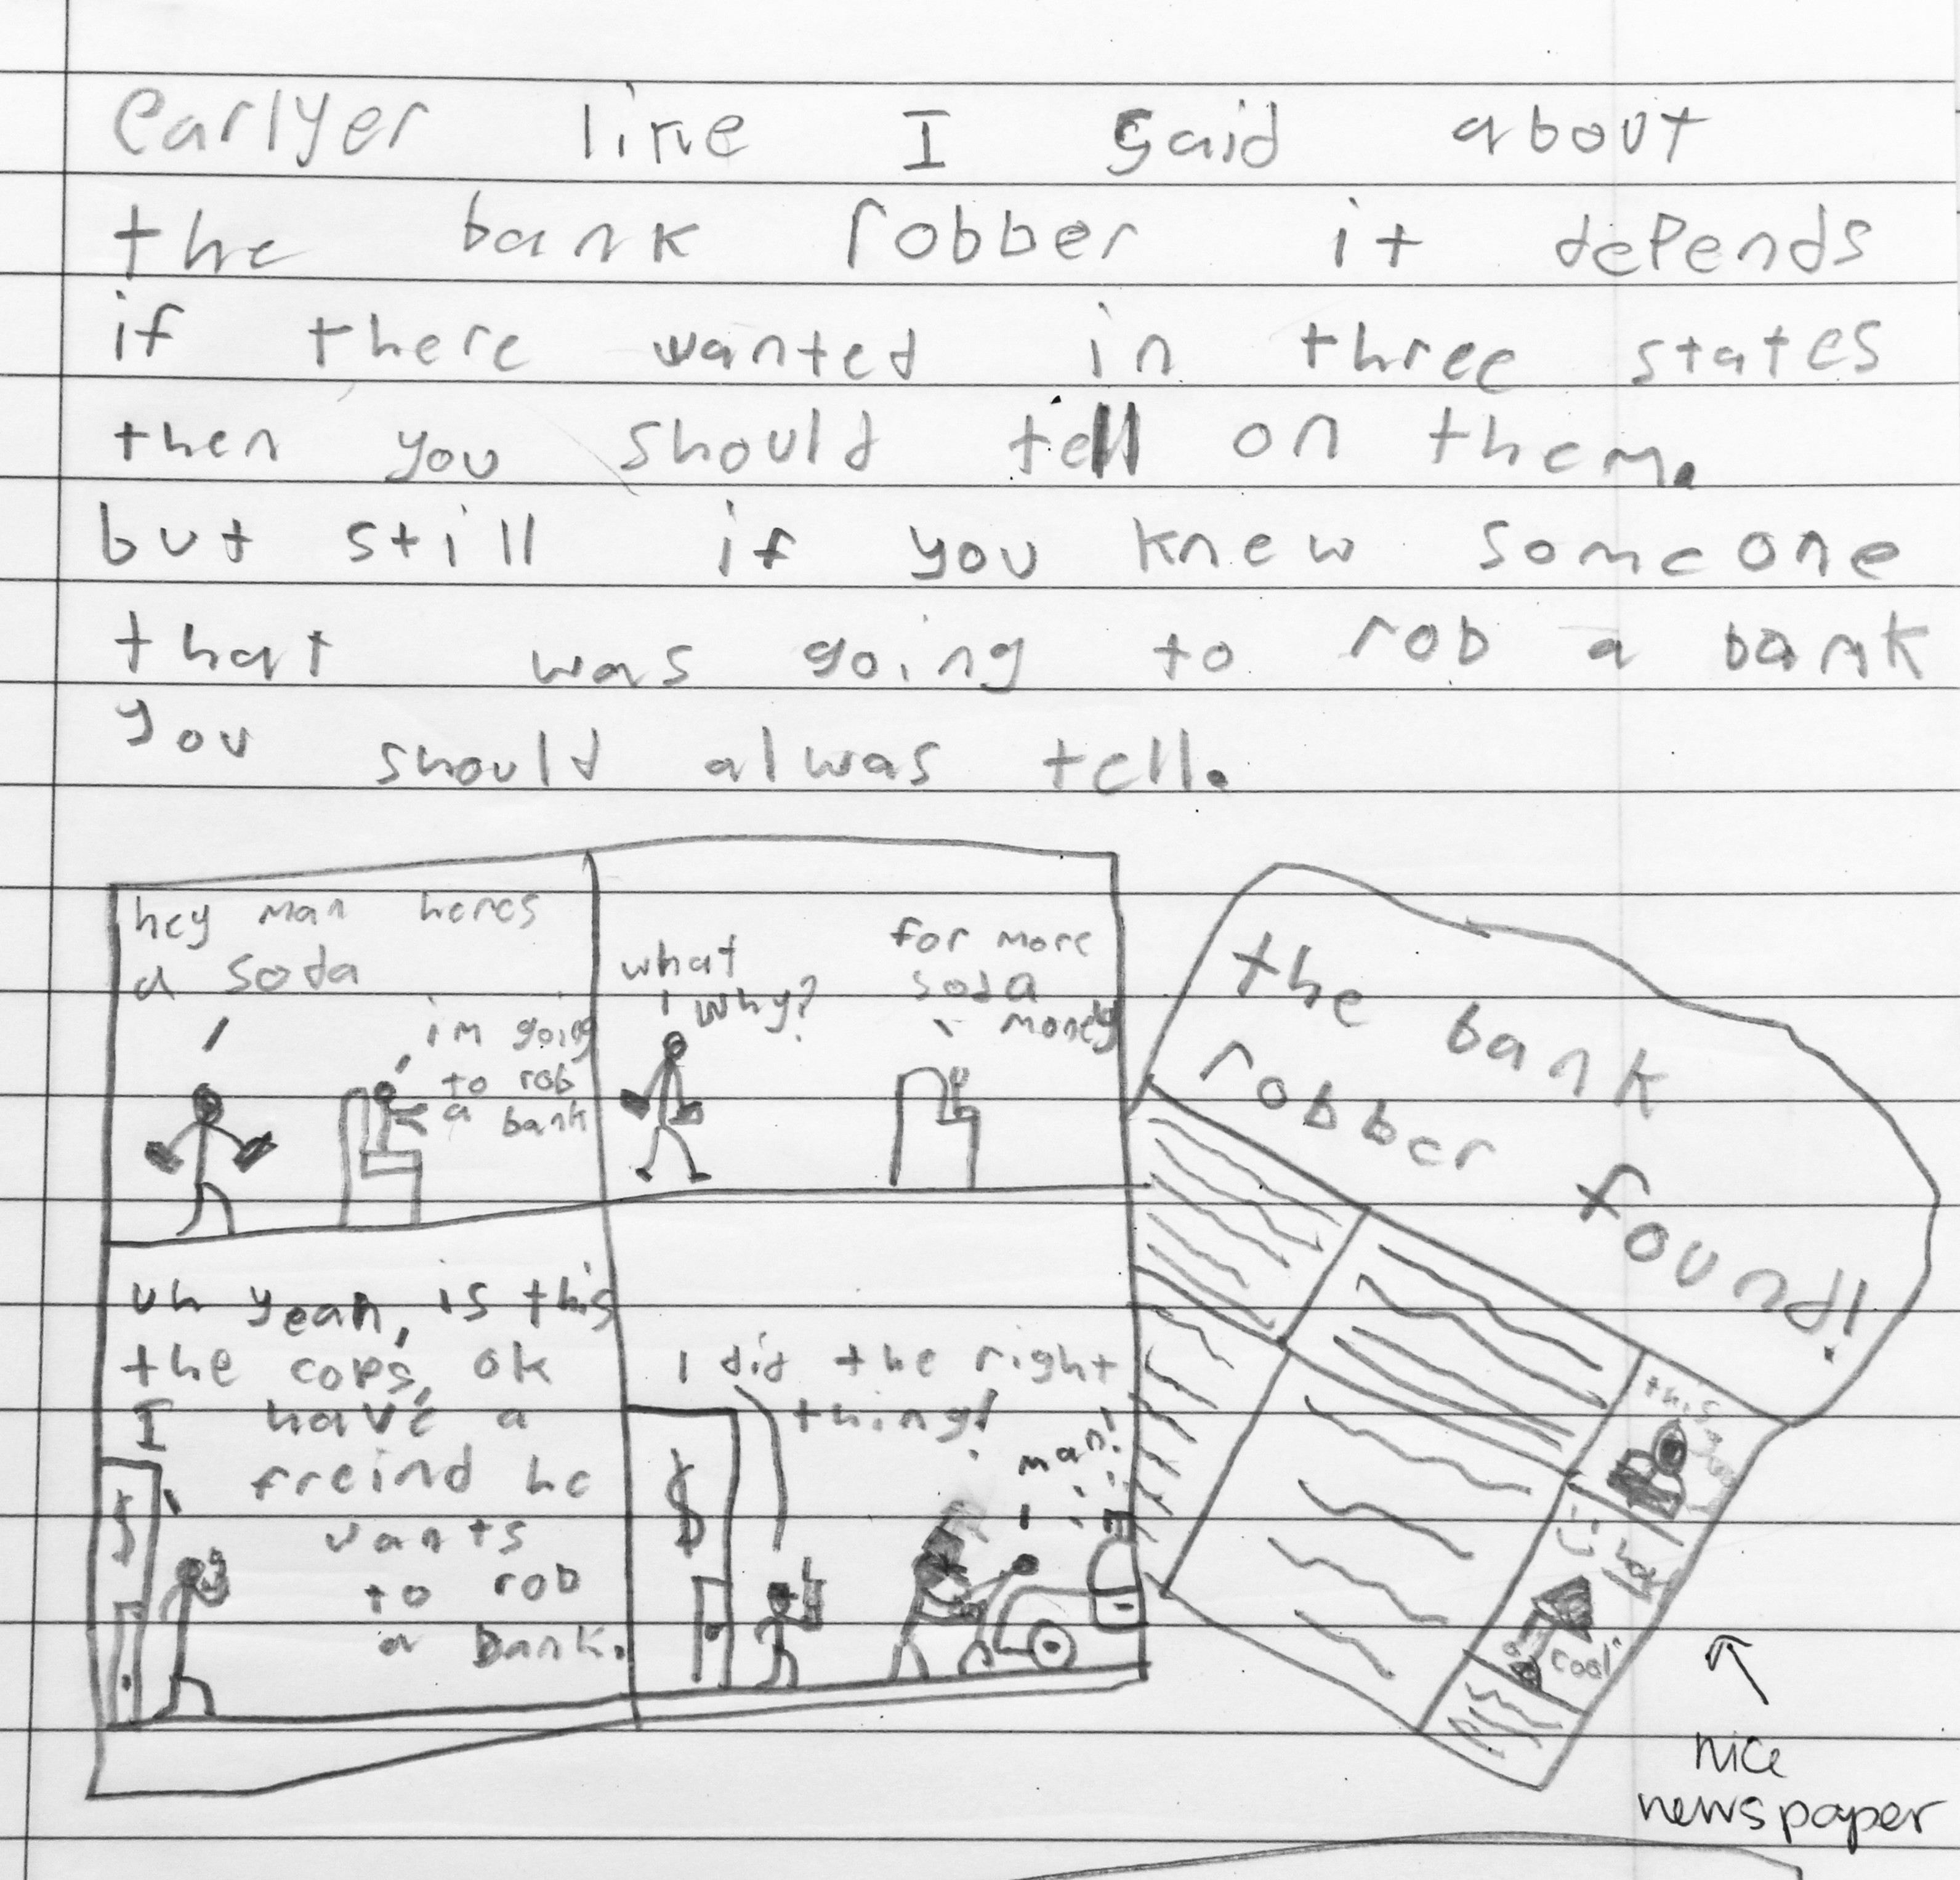 earlyer like I said about
the bank robber it depends
if there wanted in three states
then you should tell on them.
but still if you knew someone
that was going to rob a bank
you should alwas tell.
hey man heres
a soda
im going
to rob
a bank
what
why?
for more
soda
money
uh yeah, is this
the cops, ok
I have a
freind he
wants
to rob
a bank.
$
I did the right
thing!
man!
$
the bank
robber found!
this
cool
nice
newspaper